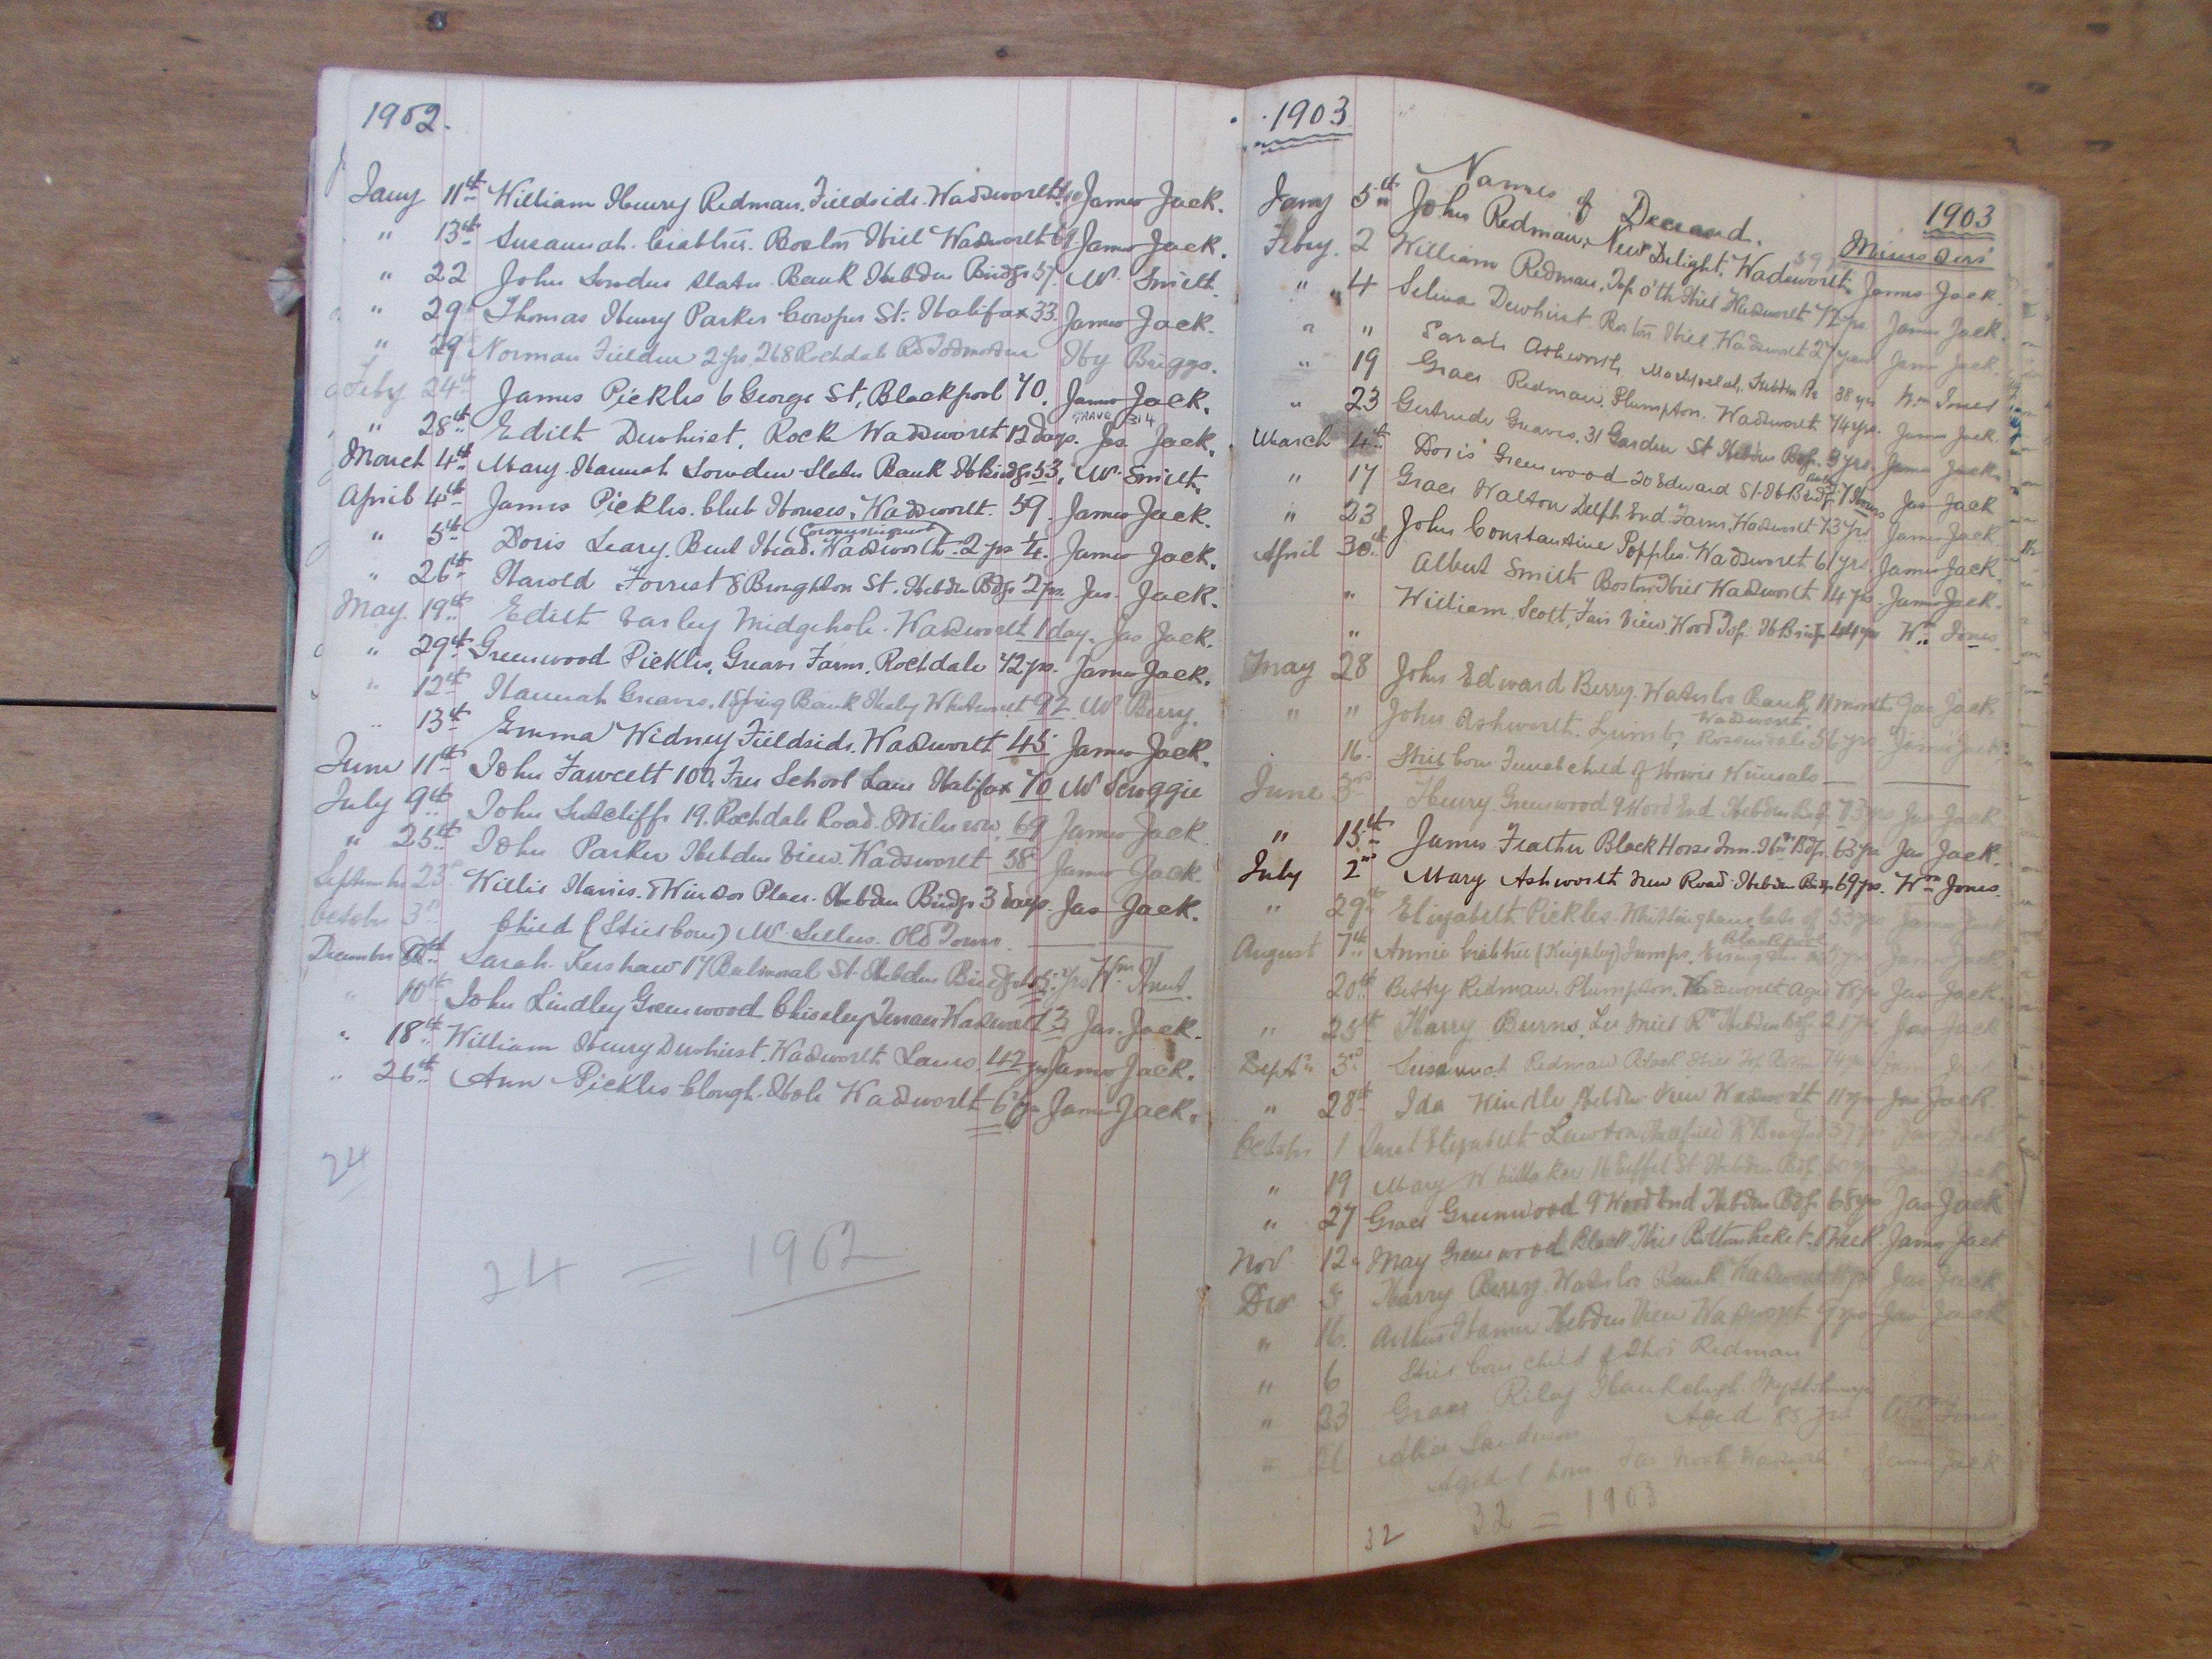 1902.
Jany 11th William Henry Redman. Fieldside. Wadsworth James Jack.
" 13th Susannah Crabtree. Boston Hill Wadsworth 69 James Jack.
" 22 John Sowden Slater Bank Hebden Bridge 57. W. Smith.
" 29 Thomas Henry Parker Cowper St. Halifax 33. James Jack.
" 29 Norman Fielden 2 yrs. 268 Rochdale Rd Todmorden Hy Briggs.
Feby 24th James Pickles 6 George St, Blackpool 70. James Jack.
GRAVE 314
" 28th Edith Dewhirst, Rock Wadsworth 12 days. Jas Jack.
March 4th Mary Hannah Sowden Slater Bank Hb Bridge 53, W. Smith.
April 4th James Pickles. Club Houses, Wadsworth. 59. James Jack.
" 5th Doris Leary. Bent Head. Wadsworth. 2 yrs James Jack.
" 26th Harold Forrest 8 Broughton St. Hebden Bdge 2 yrs. Jas. Jack.
May. 19th Edith Varley Midgehole. Wadsworth 1 day. Jas Jack.
" 29th Greenwood Pickles, Greave Farm. Rochdale 72 yrs. James Jack.
" 12th Hannah Greaves. 1 Spring Bank Healy Whitworth 92 W Berry.
" 13th Emma Widney Fieldside. Wadsworth 45 James Jack.
June 11th John Fawcett 100, Free School Lane Halifax 70 W Scroggie
July 9th John Sutcliffe 19. Rochdale Road. Milnrow. 69 James Jack
" 25th John Parker Hebden View. Wadsworth 58 James Jack.
September 23rd Willie Harris. 8 Windsor Place. Hebden Bridge 3 days. Jas Jack.
October 3rd Child (Stillborn) W. Sellers. Old Town.
December Sarah Kershaw 17 Balmoral St. Hebden Bridge Wm Hunt.
" 10th John Lindley Greenwood Chiseley Terrace Wadsworth Jas. Jack.
" 18th William Henry Dewhirst. Wadsworth Lanes 42 yrs James Jack.
" 26th Ann Pickles Clough Hole Wadsworth James Jack.
24
24 = 1902
1903
Names of Deceased.
1903
Ministers
Jany 5th John Redman, New Delight, Wadsworth 59 James Jack.
Feby. 2 William Redman, Top o'th Hill Wadsworth 72 yrs James Jack.
" 4 Selina Dewhirst Boston Hill. Wadsworth 27 years James Jack.
" " Sarah Ashworth, Hebden Br 38 yrs Wm Jones
" 19 Grace Redman. Plumpton. Wadsworth 74 yrs. James Jack.
" 23 Gertrude Greaves. 31 Garden St Hebden Bdge. 3 yrs. James Jack.
March 4th Doris Greenwood 20 Edward St. Hb Bridge 7 Hours Jas Jack
" 17 Grace Walton Delph End. Farm. Wadsworth 73 yrs James Jack
" 23 John Constantine Popples. Wadsworth 61 yrs James Jack.
April 30th Albert Smith Boston Hill Wadsworth 14 yrs James Jack.
" William Scott, Fair View. Wood Top. Hb Bridge 44 yrs Wm Jones
"
May 28 John Edward Berry. Waterloo Bank, 11 months Jas Jack
Wadsworth.
" " John Ashworth. Lumb, Rosendale 56 yrs James Jack.
16. Still born Female child of
June 3rd Henry Greenwood 9 Wood End Hebden Bdge 73 yrs Jas Jack
" 15th James Feather Black Horse Inn. Hbn Bdge. 63 yrs Jas Jack.
July 2nd Mary Ashworth New Road. Hebden Bridge 69 yrs. Wm Jones.
" 29th Elizabeth Pickles. Whittingham, late of 53 yrs James Jack
Blackpool
August 7th Annie Crabtree (Keighley) Jumps. Erringden James Jack
20th Betty Redman. Plumpton. Wadsworth aged 78 yrs Jas Jack.
" 25th Harry Burns. Lee Mill Rd Hebden Bdge Jas Jack
Septr 3rd Susannah Redman Black Hill Top 74 yrs James Jack
" 28th Ida Windle Hebden View Wadsworth 11 yrs Jas Jack.
October 1 Sarah Elizabeth Lawton Jas Jack
" 19 Mary Whittaker 16 Eiffel St Hebden Bdge 60 yrs Jas Jack
" 27 Grace Greenwood 9 Wood End Hebden Bdge 68 yrs Jas Jack
Nov. 12 May Greenwood Black Hill 1 Week. James Jack
Dec 5 Harry Berry. Waterloo Bank, Wadsworth Jas Jack
" 16. Arthur Hamer Hebden View Wadsworth 9 yrs Jas Jack
" 6 Still born child of Thos Redman
" 23 Grace Riley
Aged 85 yrs Wm Jones
" Alice Sanderson
Aged 1 hour. Far Nook Wadsworth James Jack
32 32 = 1903